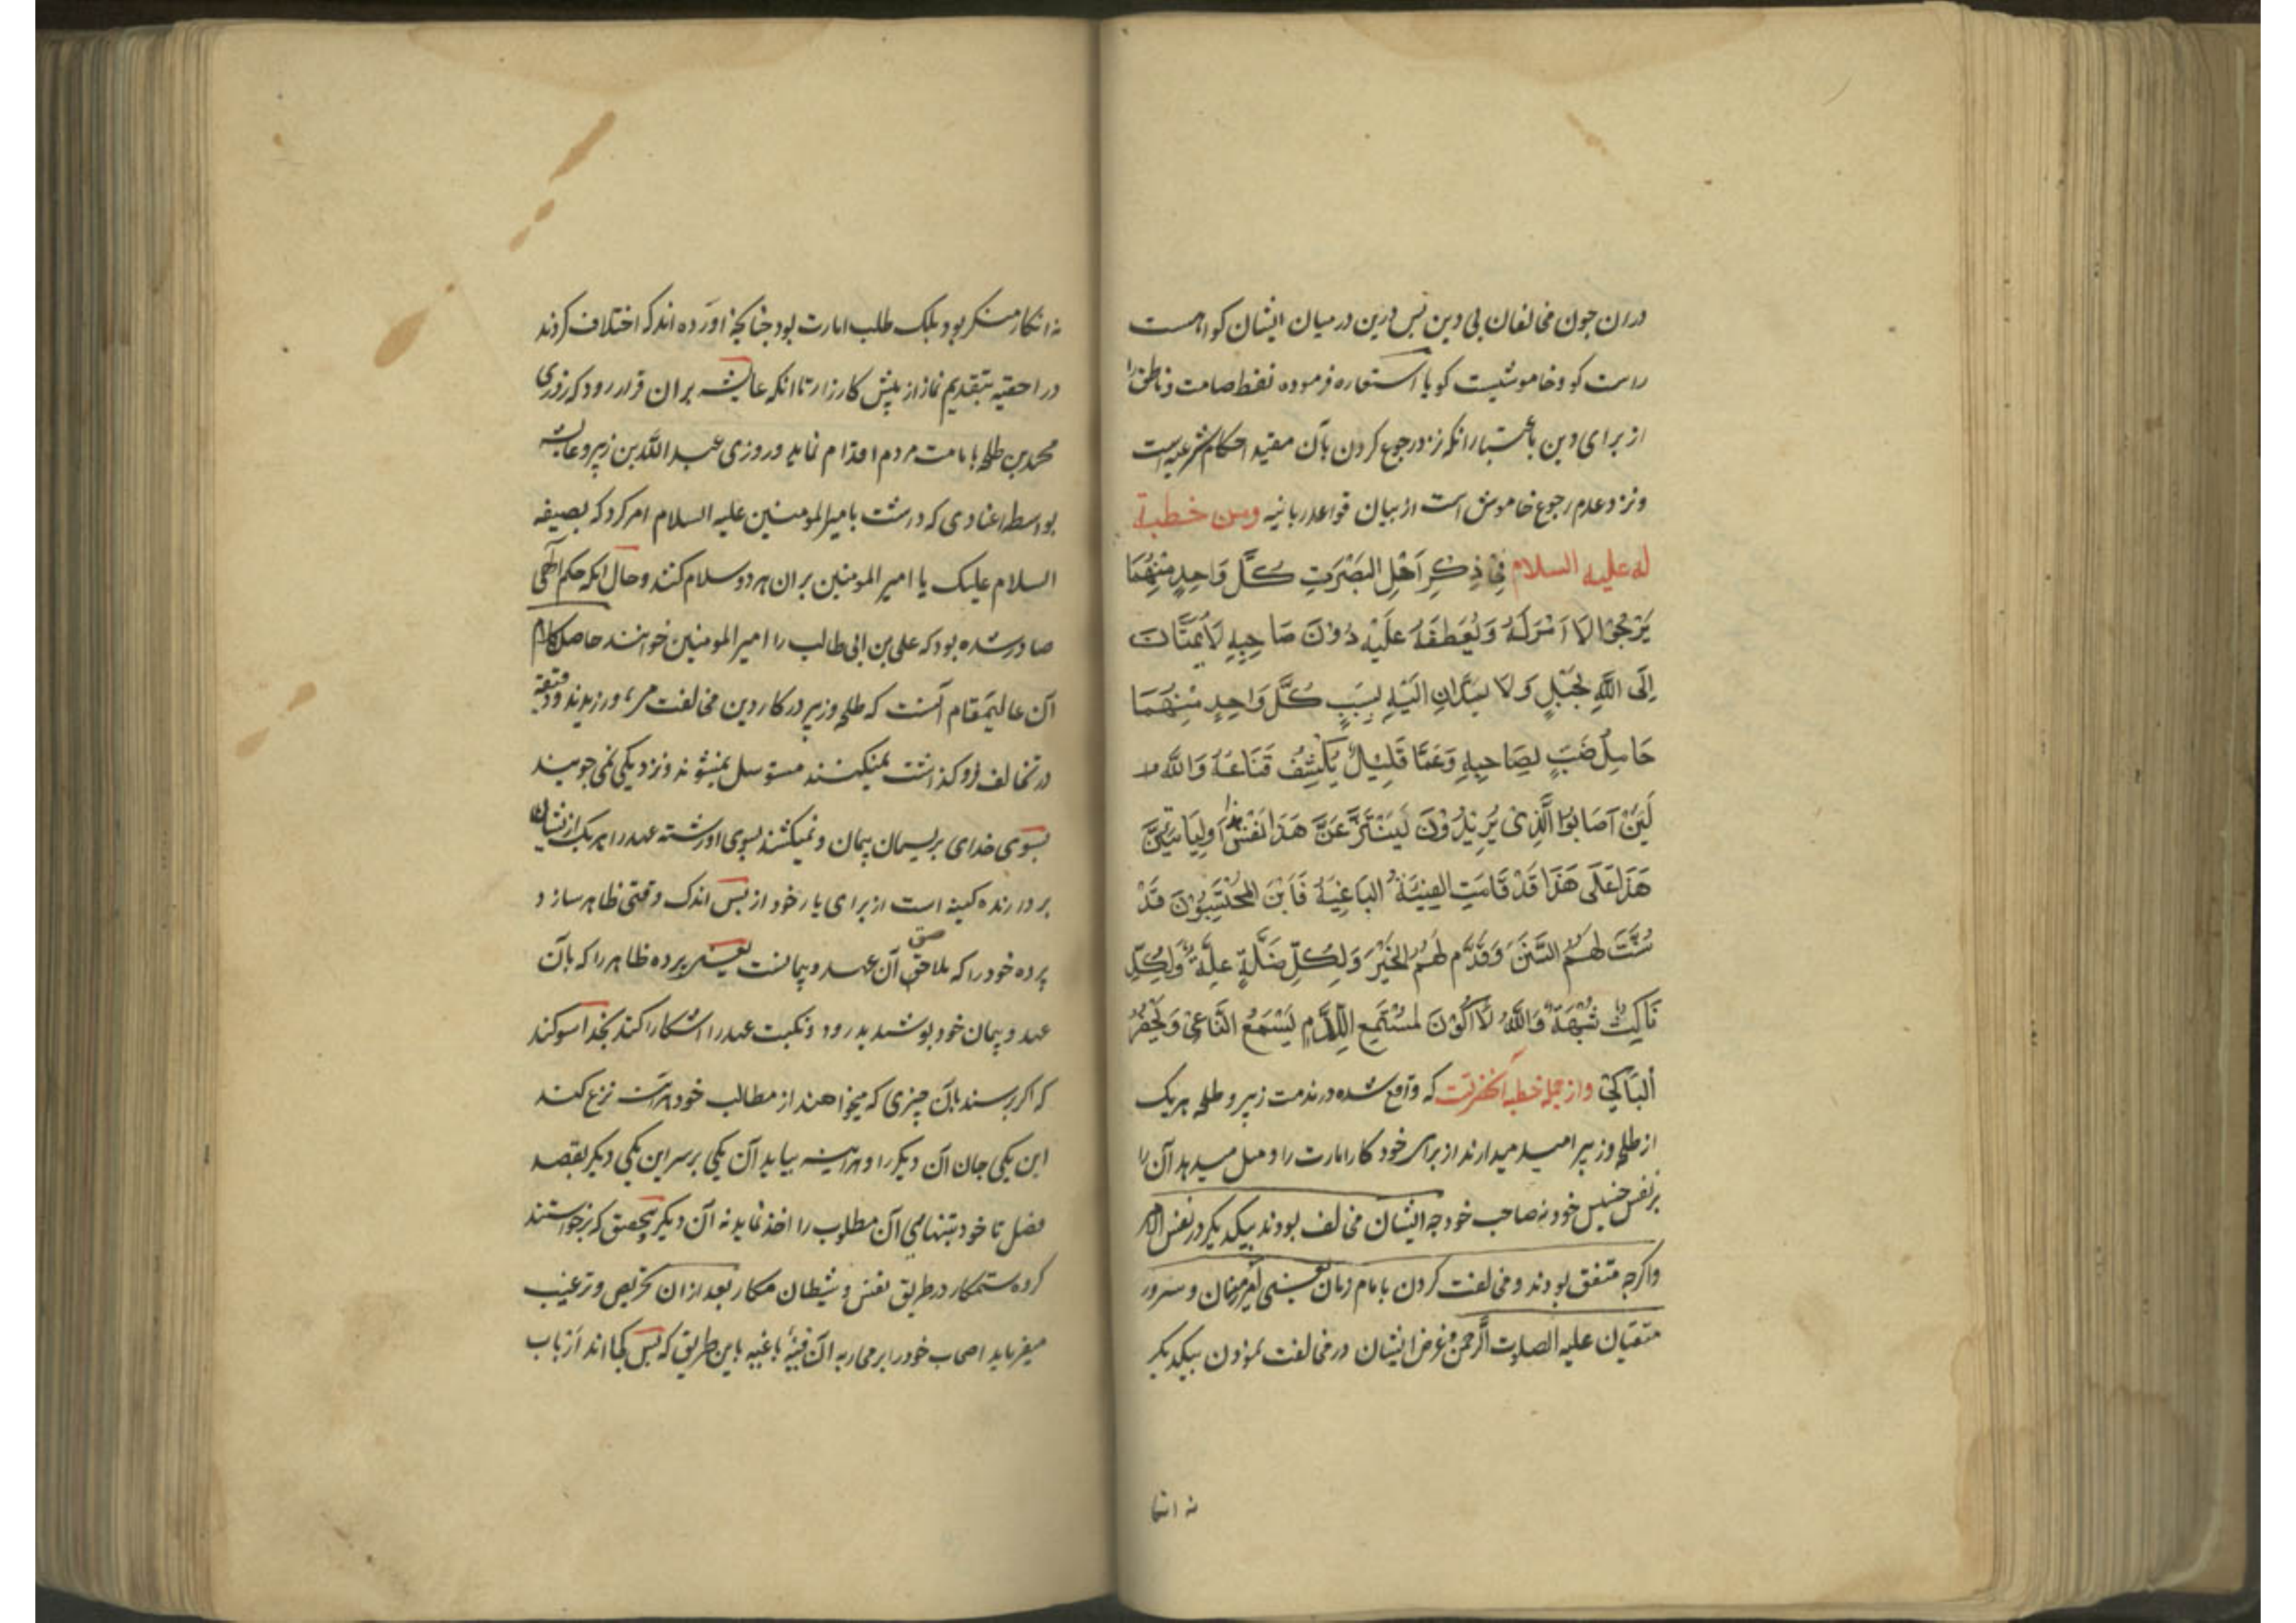 دران چون مخالفان بی دین پس دین در میان ایشان کواهست
راست کو و خاموشیست کویا استعاره فرموده لفظ صامت و ناطق را
از برای دین باعتبار انکه نزد رجوع کردن بآن مفید احکام شرعیه است
و نزد عدم رجوع خاموش است از بیان قواعد ربانیه ومن خطبة
له علیه السلام فِي ذِكرِ اَهْلِ البَصْرَتِ كُلَّ وَاحِدٍ مِنْهُمَا
يَرْجُوْا الاَمْرَ لَهُ وَيَعْطِفَهُ عَلَيْهِ دُوْنَ صَاحِبِهِ لَا يَمُتَّانِ
اِلَى اللّهِ بِحَبْلٍ وَلَا يَمُدَّانِ اِلَيْهِ بِسَبَبٍ كُلَّ وَاحِدٍ مِنْهُمَا
حَامِلُ ضَبٍّ لِصَاحِبِهِ وَعَمَّا قَلِيْلٍ يَكْشِفُ قِنَاعُهُ وَاللّهِ
لَئِنْ اَصَابُوْا الَّذِى يُرِيْدُوْنَ لَيَنْتَزِعَنَّ هَذَا نَفْسَ هذا وَلَيَاتِيَنَّ
هَذَا عَلَى هَذَا قَدْ قَامَتِ الفِئَةُ البَاغِيَةُ فَاَيْنَ المُحْتَسِبُوْنَ قَدْ
سُنَّتَ لَهُمُ السُّنَنَ وَقُدِّمَ لَهُمُ الخَيْرَ وَلِكُلِّ ضَلَّةٍ عِلَّةٌ وَلِكُلِّ
نَاكِثٍ شُبْهَةٌ وَاللّهِ لَا اَكُوْنَ لمُسْتَمِعِ اللَّدْمِ يَسْمَعُ النَّاعِيْ وَيَحْضُرُ
اَلْبَاكِيْ واز جمله خطبه آنحضرتست که واقع شده در مذمت زبیر و طلحه هر یک
از طلحه و زبیر امید میدارند از برای خود کار امارت را و میل میدهد آن را
بر نفس خسیس خود نه صاحب خود چه ایشان مخالف بودند بیکدیکر در نفس الامر
واکرچه متفق بودند و مخالفت کردن با امام زمان یعنی امیر مومنان و سرور
متقیان علیه الصلوت الرحمن و غرض ایشان در مخالفت نمودن بیکدیکر
نه انکا
نه انکار منکر بود بلکه طلب امارت بود چنانچه آورده اند که اختلاف کردند
در احقیه بتقدیم نماز از پیش کارزار تا انکه عایشه بران قرار رود که روزی
محمد بن طلحه بامامت مردم اقدام نماید و روزی عبد اللّه بن زبیر و عایشه
بواسطه عنادی که درشت با میر المومنین علیه السلام امر کرد که بصیغه
السلام علیک یا امیر المومنین بران هر دو سلام کنند و حال انکه حکم الهی
صادر شده بود که علی بن ابی طالب را امیر المومنین خوانند حاصل کلام
آن عالیمقام آنست که طلحه و زبیر در کار دین مخالفت من ورزیدند و دقیقه
در تخالف فرو کذاشت نمیکنند متوسل نمیشوند و نزدیکی نمی جویند
بسوی خدای بریسمان پیمان و نمیکشند بسوی او رشته عهد را هر یک از ایشان
بردارنده کینه است از برای یار خود از پس اندک وقتی ظاهر سازد
پرده خود را که ملاحق آن عهد و پیمانست یعنی پرده ظاهر را که بآن
عهد و پیمان خود پوشید بدرود و نکبت عهد را اشکارا کند بخدا سوکند
که اکر برسند بآن چیزی که میخواهند از مطالب خود هرآینه نزع کند
این یکی جان آن دیکر را و هرآینه بیاید آن یکی بر سر این یکی دیکر بقصد
فضل تا خود بتنهایی آن مطلوب را اخذ نماید نه آن دیکر بتحقیق که برخواستند
کروه ستمکار در طریق نفس و شیطان مکار بعد ازان تحریص و ترغیب
میفرماید اصحاب خود را بر محاربه آن فیئه باغیه باین طریق که پس کجا اند ارباب